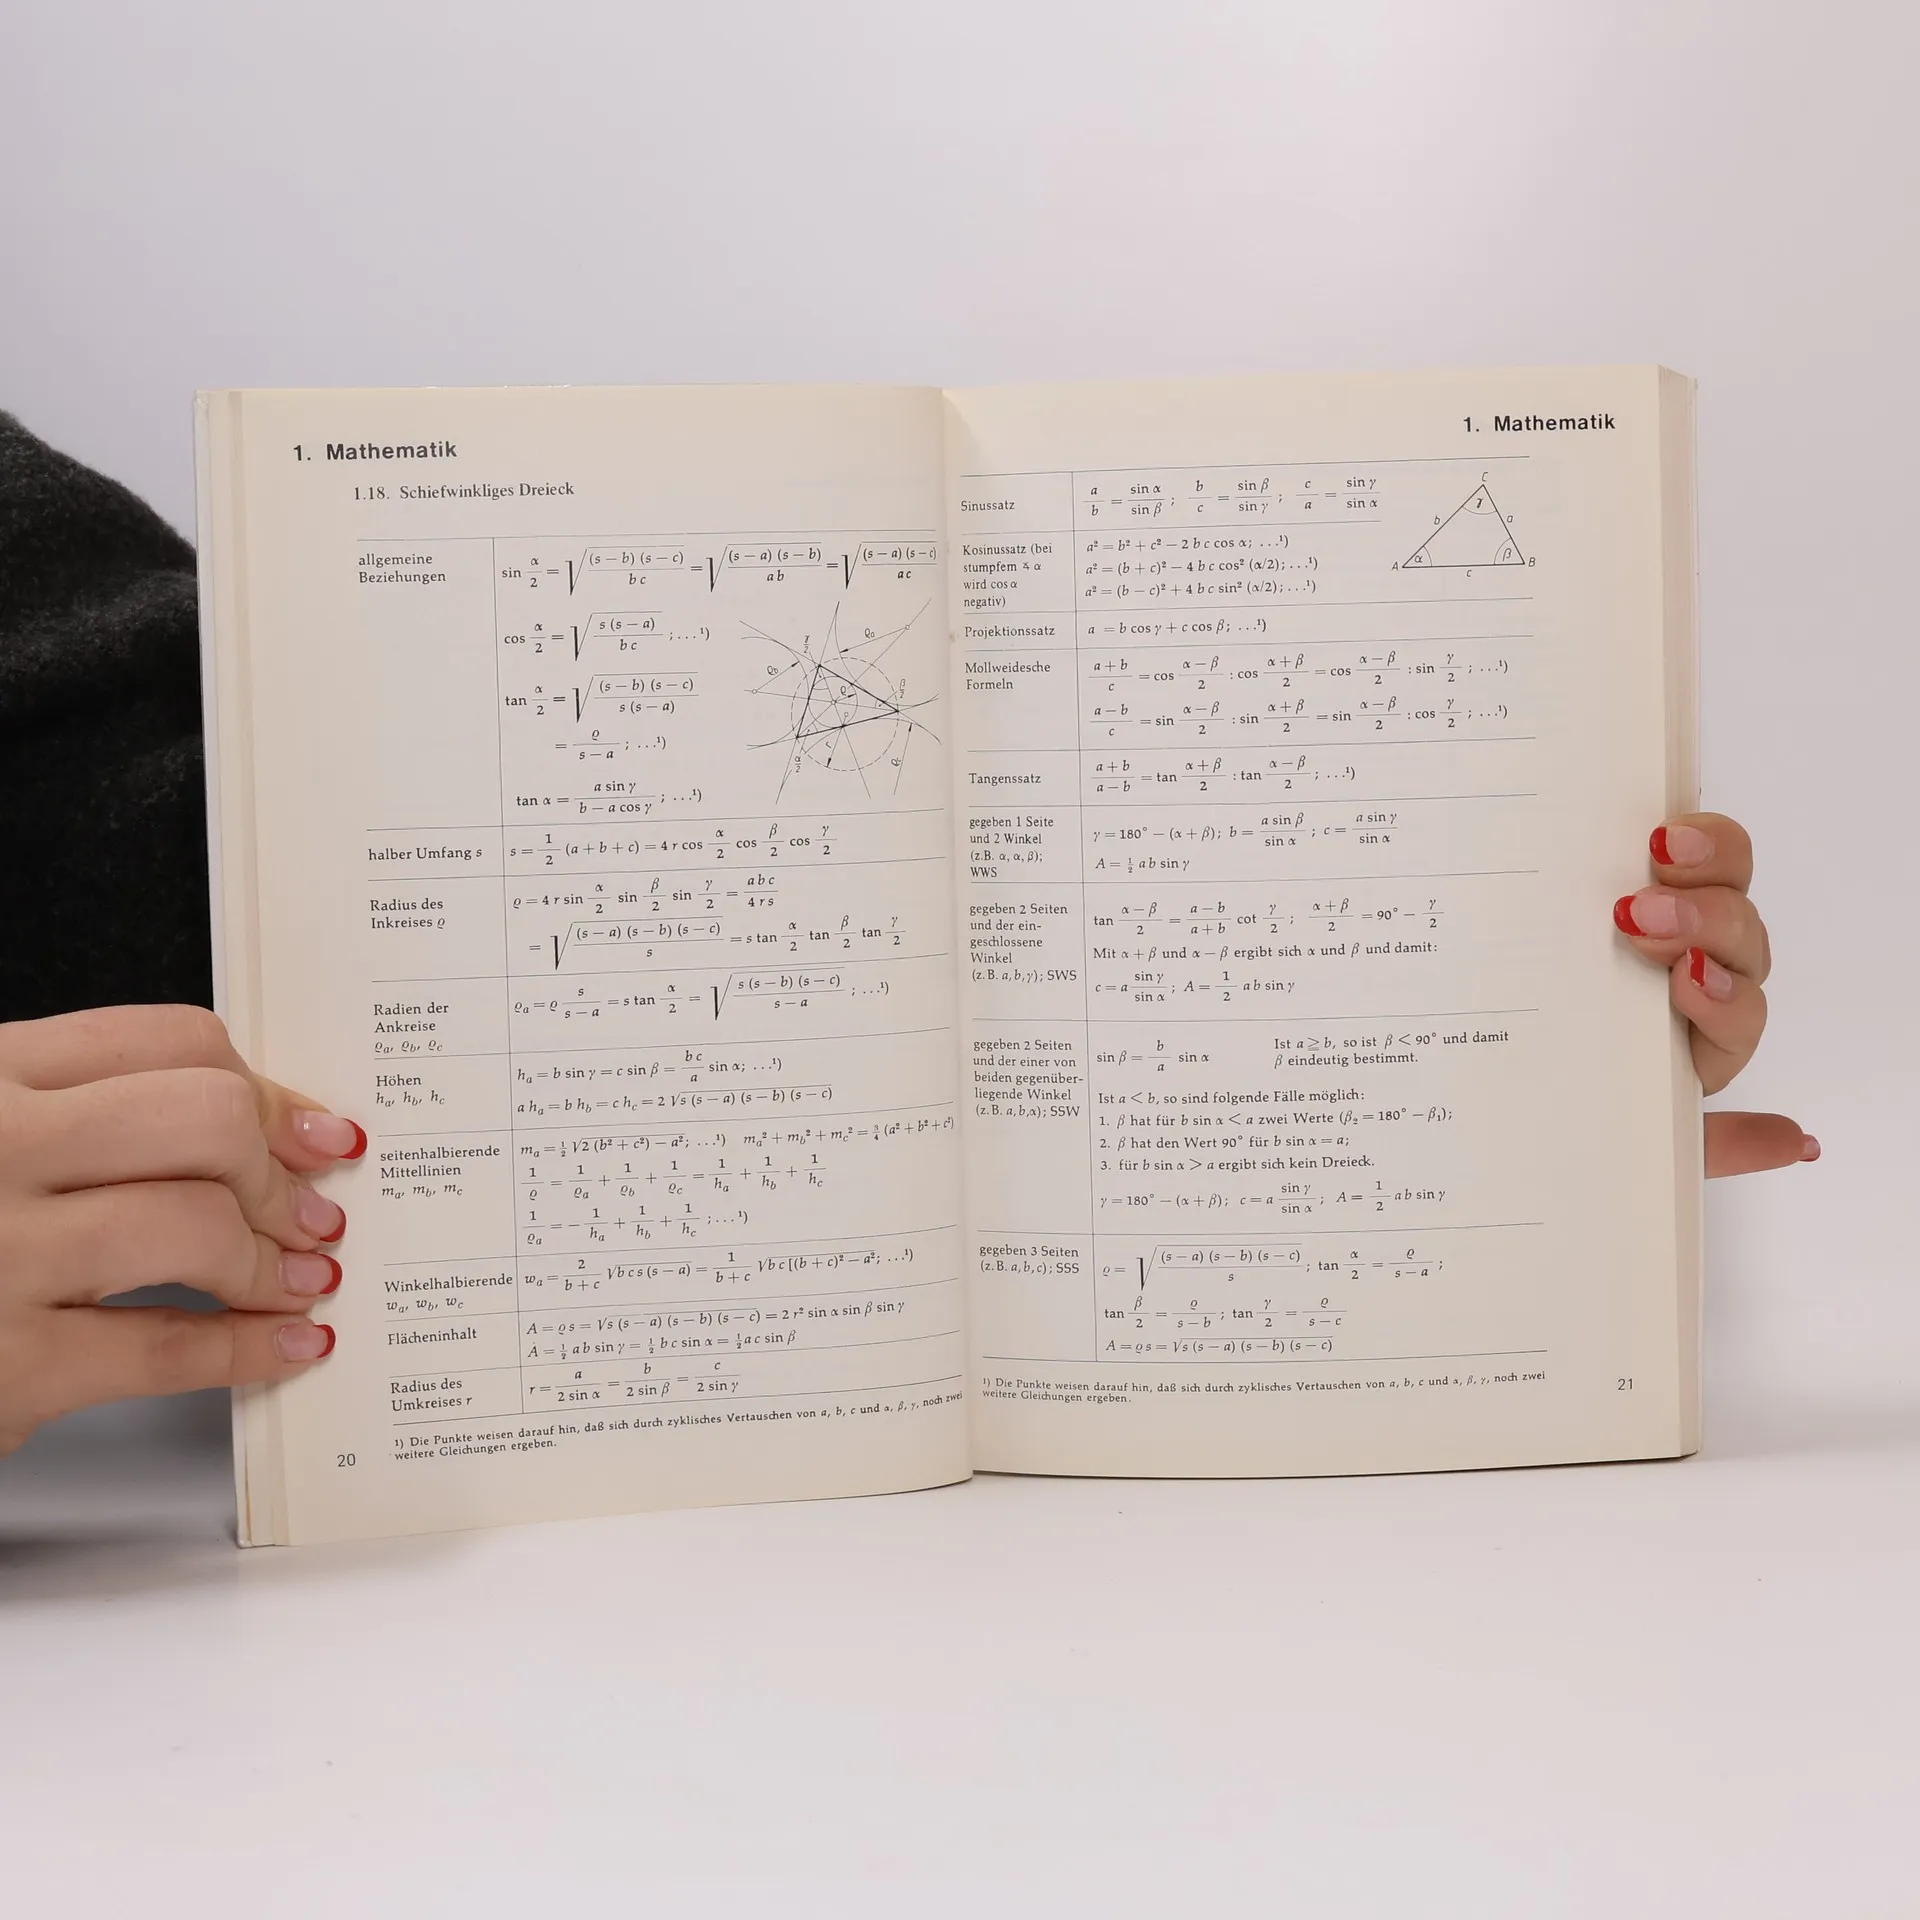 1. Mathematik
1.18. Schiefwinkliges Dreieck
allgemeine Beziehungen
sin α/2 = √((s − b) (s − c) / b c) = √((s − a) (s − b) / a b) = √((s − a) (s − c) / a c)
cos α/2 = √(s (s − a) / b c) ; . . .¹)
tan α/2 = √((s − b) (s − c) / s (s − a))
= ϱ / s − a ; . . .¹)
tan α = a sin γ / b − a cos γ ; . . .¹)
γ/2 ϱa ϱb β/2 ϱ r α/2 ϱc
halber Umfang s
s = 1/2 (a + b + c) = 4 r cos α/2 cos β/2 cos γ/2
Radius des Inkreises ϱ
ϱ = 4 r sin α/2 sin β/2 sin γ/2 = a b c / 4 r s
= √((s − a) (s − b) (s − c) / s) = s tan α/2 tan β/2 tan γ/2
Radien der Ankreise ϱa, ϱb, ϱc
ϱa = ϱ s / s − a = s tan α/2 = √(s (s − b) (s − c) / s − a) ; . . .¹)
Höhen ha, hb, hc
ha = b sin γ = c sin β = b c / a sin α; . . .¹)
a ha = b hb = c hc = 2 √s (s − a) (s − b) (s − c)
seitenhalbierende Mittellinien ma, mb, mc
ma = ½ √2 (b² + c²) − a²; . . .¹) ma² + mb² + mc² = ¾ (a² + b² + c²)
1/ϱ = 1/ϱa + 1/ϱb + 1/ϱc = 1/ha + 1/hb + 1/hc
1/ϱa = − 1/ha + 1/hb + 1/hc ; . . .¹)
Winkelhalbierende wa, wb, wc
wa = 2 / b + c √b c s (s − a) = 1 / b + c √b c [(b + c)² − a²; . . .¹)
Flächeninhalt
A = ϱ s = √s (s − a) (s − b) (s − c) = 2 r² sin α sin β sin γ
A = ½ a b sin γ = ½ b c sin α = ½ a c sin β
Radius des Umkreises r
r = a / 2 sin α = b / 2 sin β = c / 2 sin γ
¹) Die Punkte weisen darauf hin, daß sich durch zyklisches Vertauschen von a, b, c und α, β, γ, noch zwei
weitere Gleichungen ergeben.
20
1. Mathematik
Sinussatz
a/b = sin α / sin β ; b/c = sin β / sin γ ; c/a = sin γ / sin α
C γ b a α β A c B
Kosinussatz (bei
stumpfem ∢ α
wird cos α
negativ)
a² = b² + c² − 2 b c cos α; . . .¹)
a² = (b + c)² − 4 b c cos² (α/2); . . .¹)
a² = (b − c)² + 4 b c sin² (α/2); . . .¹)
Projektionssatz
a = b cos γ + c cos β; . . .¹)
Mollweidesche
Formeln
a + b / c = cos α − β / 2 : cos α + β / 2 = cos α − β / 2 : sin γ/2 ; . . .¹)
a − b / c = sin α − β / 2 : sin α + β / 2 = sin α − β / 2 : cos γ/2 ; . . .¹)
Tangenssatz
a + b / a − b = tan α + β / 2 : tan α − β / 2 ; . . .¹)
gegeben 1 Seite
und 2 Winkel
(z.B. α, α, β);
WWS
γ = 180° − (α + β); b = a sin β / sin α ; c = a sin γ / sin α
A = ½ a b sin γ
gegeben 2 Seiten
und der ein-
geschlossene
Winkel
(z. B. a, b, γ); SWS
tan α − β / 2 = a − b / a + b cot γ/2 ; α + β / 2 = 90° − γ/2
Mit α + β und α − β ergibt sich α und β und damit:
c = a sin γ / sin α ; A = 1/2 a b sin γ
gegeben 2 Seiten
und der einer von
beiden gegenüber-
liegende Winkel
(z. B. a, b, α); SSW
sin β = b/a sin α
Ist a ≧ b, so ist β < 90° und damit
β eindeutig bestimmt.
Ist a < b, so sind folgende Fälle möglich:
1. β hat für b sin α < a zwei Werte (β₂ = 180° − β₁);
2. β hat den Wert 90° für b sin α = a;
3. für b sin α > a ergibt sich kein Dreieck.
γ = 180° − (α + β); c = a sin γ / sin α ; A = 1/2 a b sin γ
gegeben 3 Seiten
(z. B. a, b, c); SSS
ϱ = √((s − a) (s − b) (s − c) / s) ; tan α/2 = ϱ / s − a ;
tan β/2 = ϱ / s − b ; tan γ/2 = ϱ / s − c
A = ϱ s = √s (s − a) (s − b) (s − c)
¹) Die Punkte weisen darauf hin, daß sich durch zyklisches Vertauschen von a, b, c und α, β, γ, noch zwei
weitere Gleichungen ergeben.
21